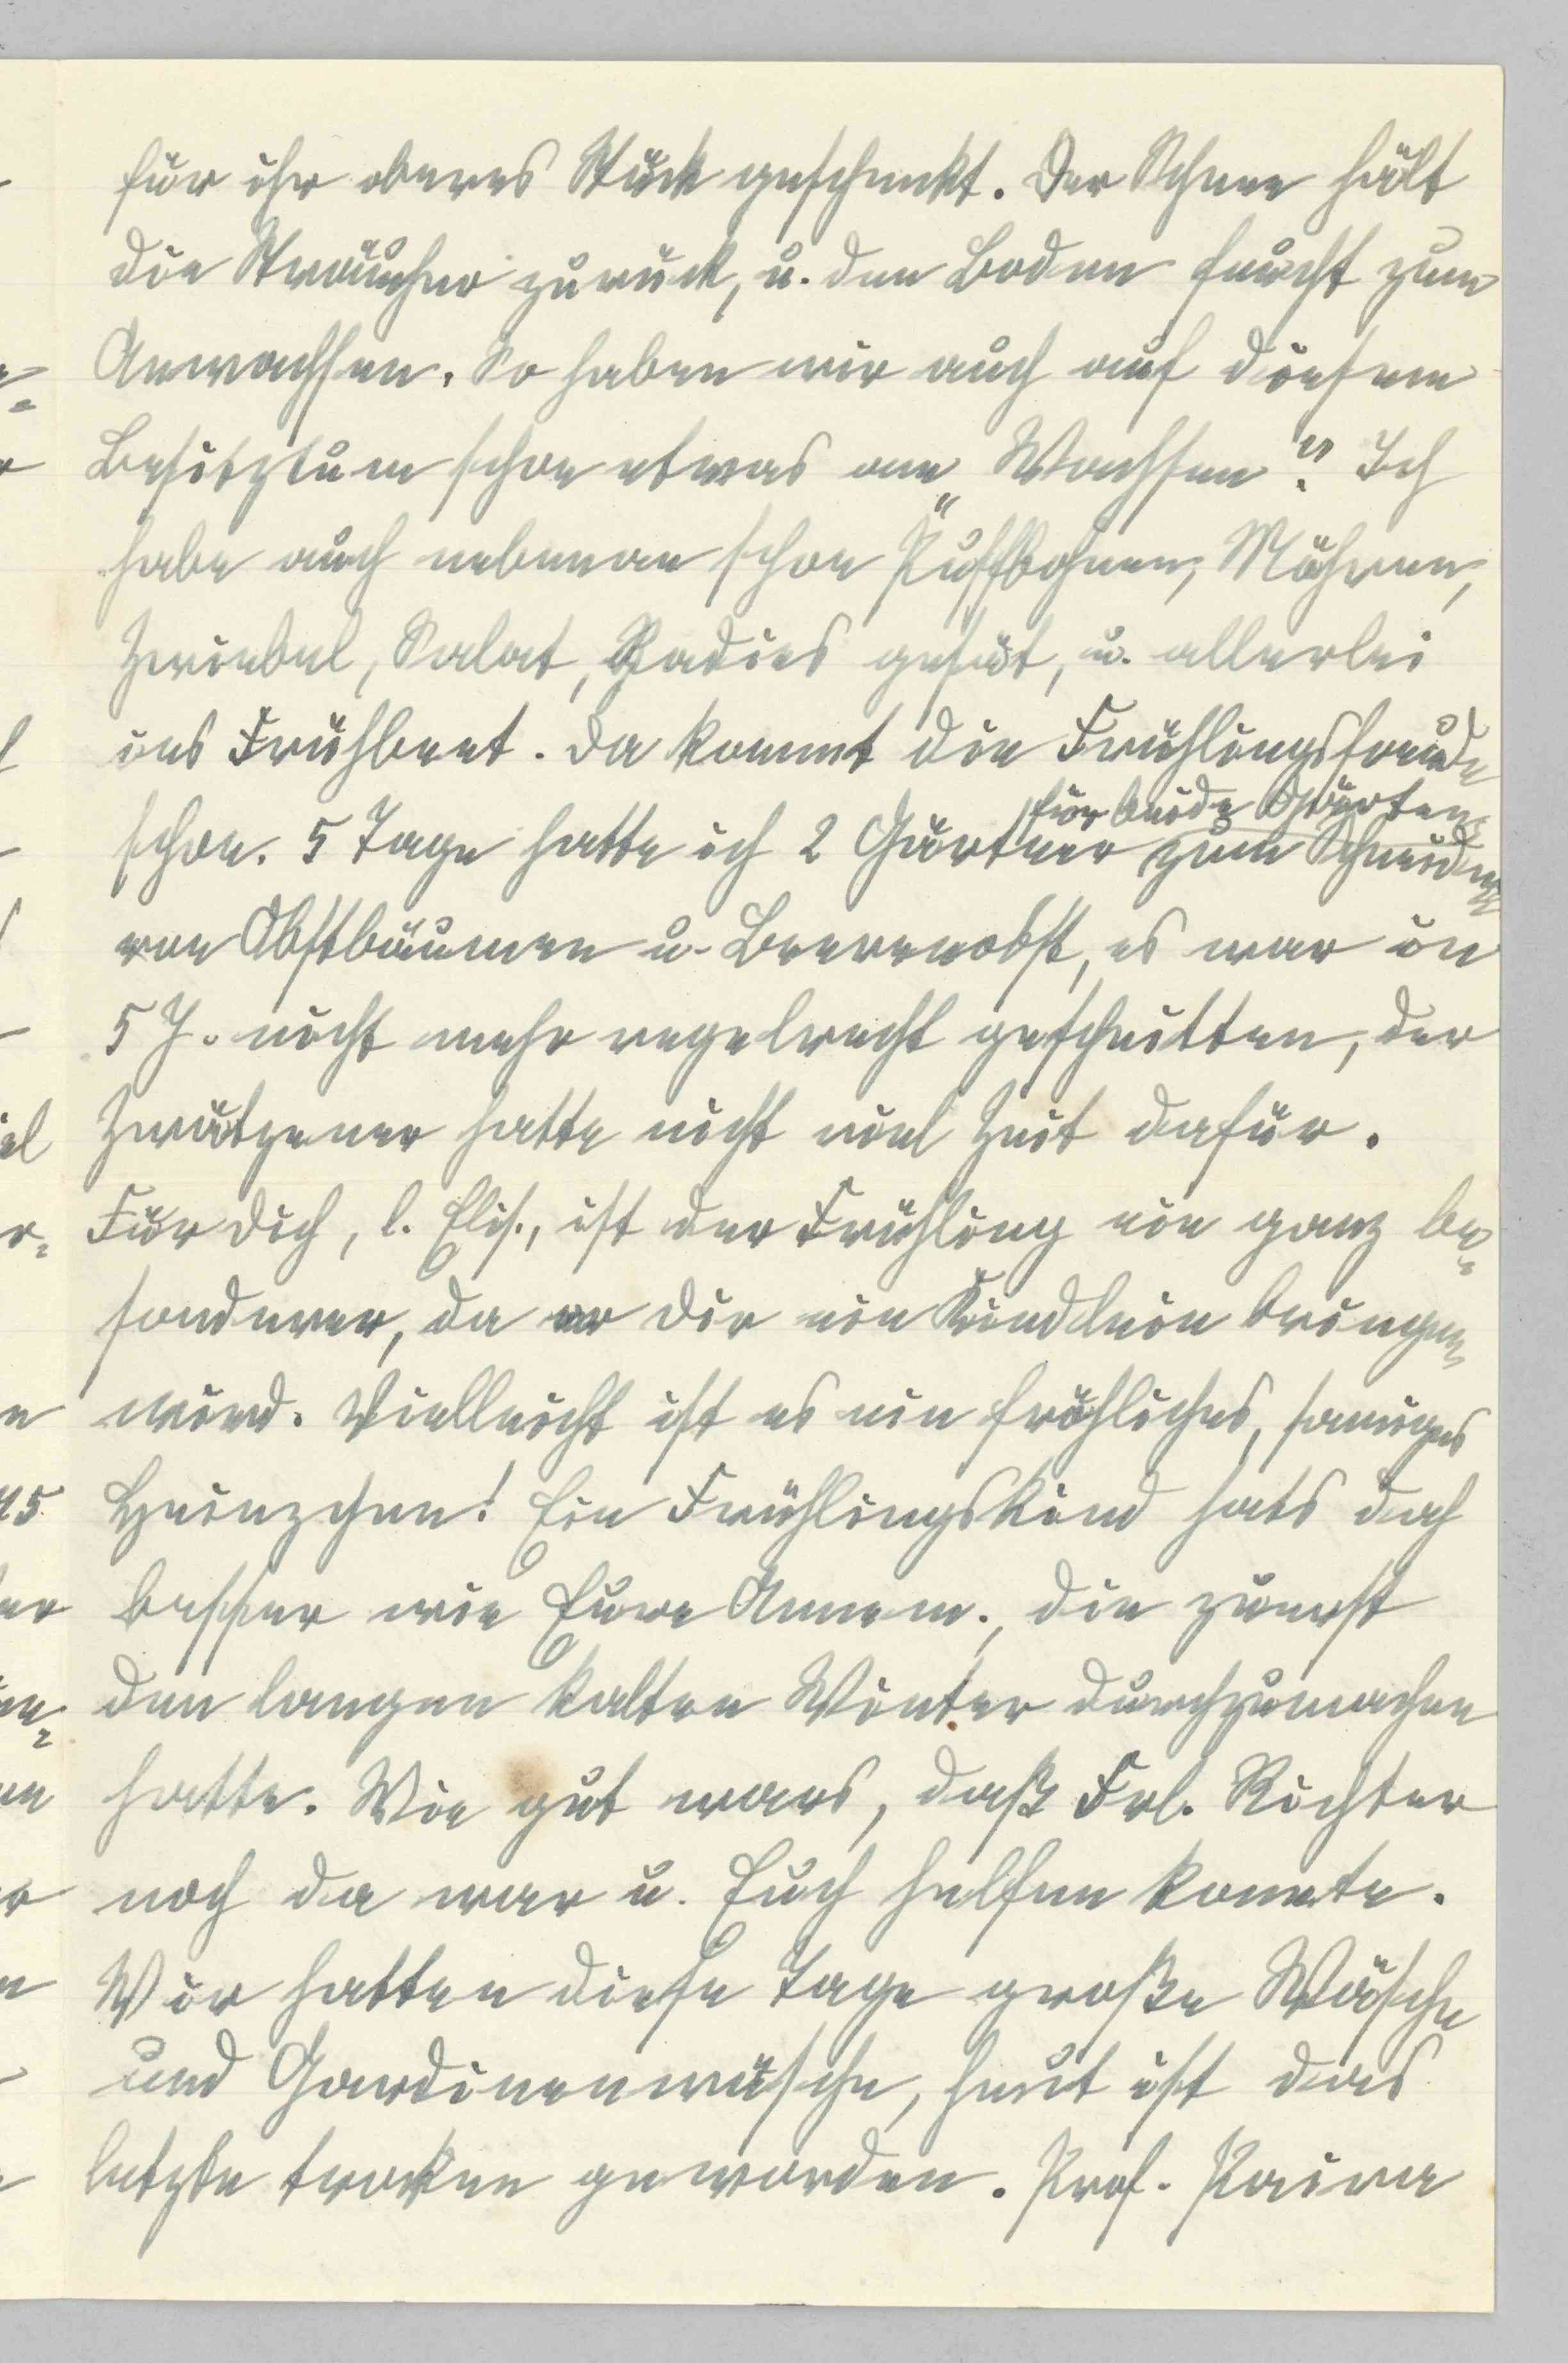 für ihr oberes Stück geschenkt. Der Schnee hält
die Sträucher zurück, u. den Boden feucht zum
Anwachsen. So haben wir auch auf diesem
Besitztum schon etwas am „Wachsen“. Ich
habe auch nebenan schon Puffbohnen, Möhren,
Zwiebel, Salat, Radies gesät, u. allerlei
ins Frühbeet. Da kommt die Frühlingsfreude
schon. 5 Tage hatte ich 2 Gärtner für beide Gärten zum Schneiden
von Obstbäumen u. Beerenobst, es war in
5 J. nicht mehr regelrecht geschnitten, der
Zwätzener hatte nicht viel Zeit dafür.
Für Dich, l. Elis., ist der Frühling ein ganz be=
sonderer, da er Dir ein Kindlein bringen
wird. Vielleicht ist es ein fröhliches, sonniges
Heinzchen! Ein Frühlingskind hats doch
besser wie Eure Annem., die zuerst
den langen kalten Winter durchzumachen
hatte. Wie gut wars, daß Frl. Richter
noch da war u. Euch helfen konnte.
Wir hatten diese Tage große Wäsche
und Gardinenwäsche, heut ist das
letzte trocken geworden. Prof.